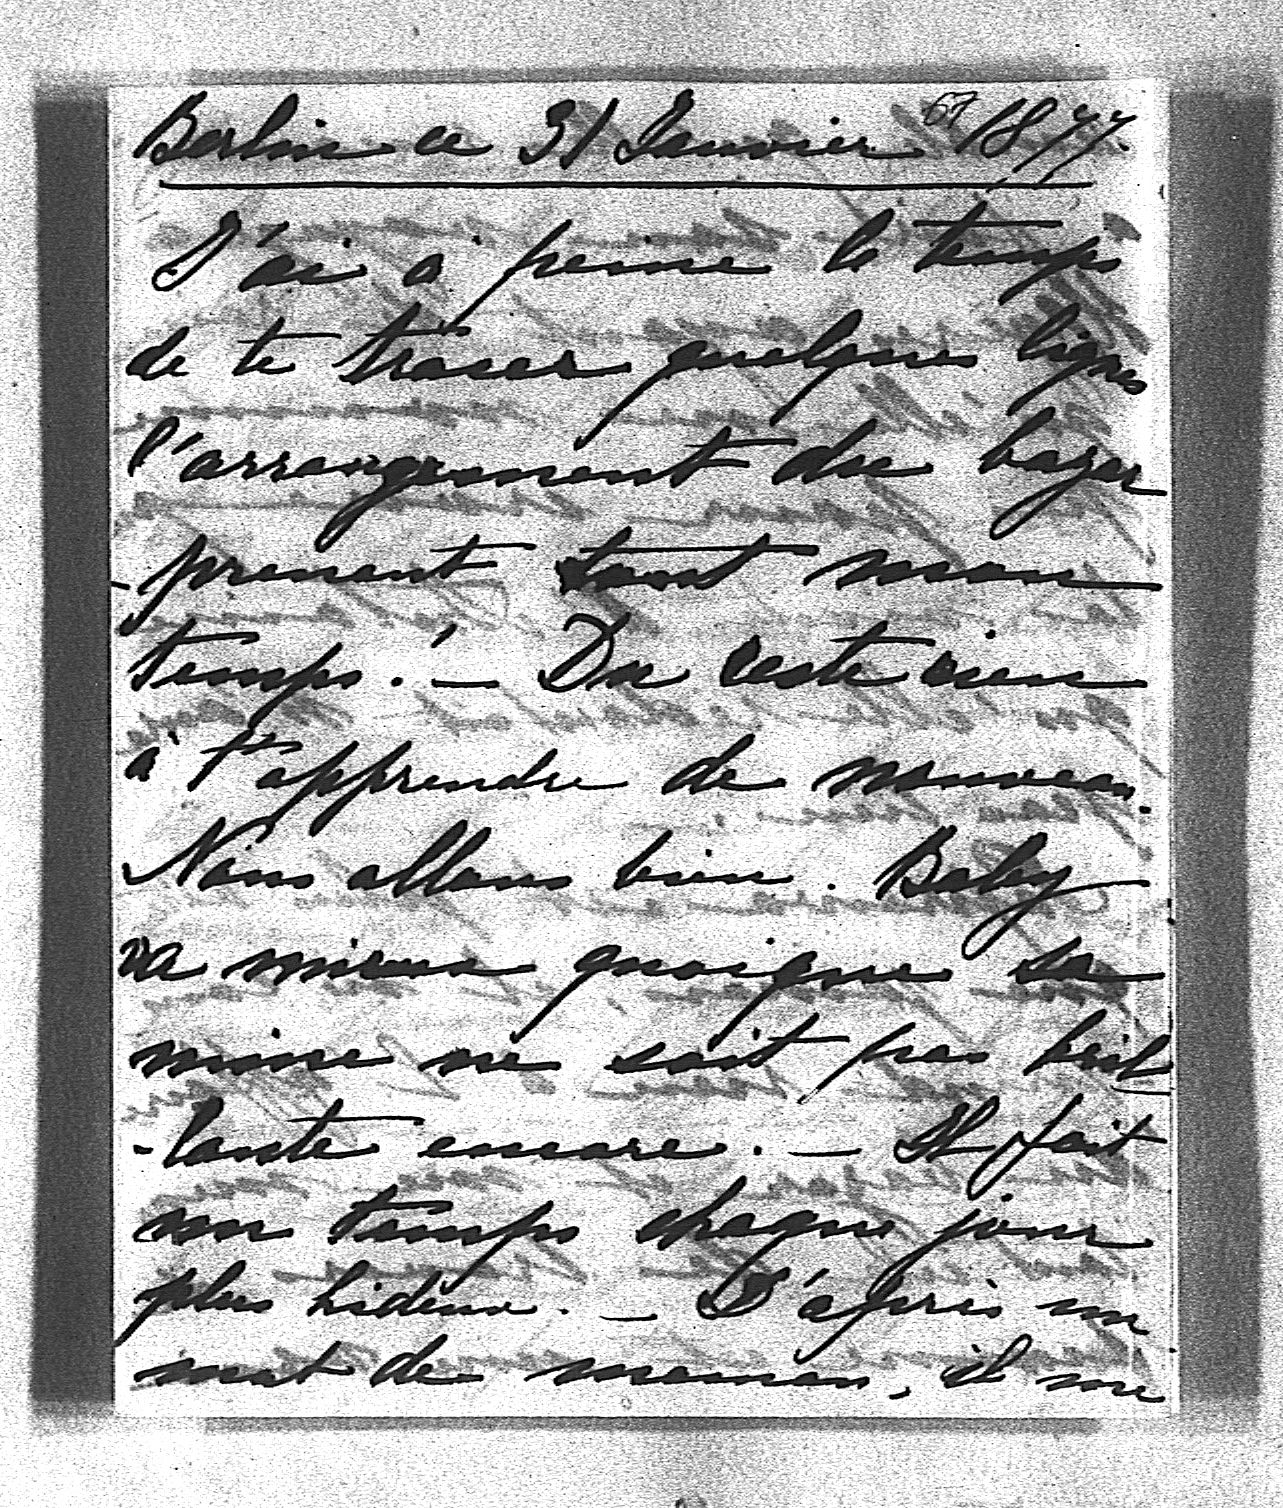 67
Berlin ce 31 Janvier 1877.
J'ai à peine le temps
de te tracer quelques lignes
l'arrangement du bazar
prenant tout mon
temps. ! — Du reste rien
à t'apprendre de nouveau.
Nous allons bien. Baby
va mieux quoique sa
mine ne soit pas bril
-lante encore. — Il fait
un temps chaque jour
plus hideux. — D'après un
mot de maman, il me